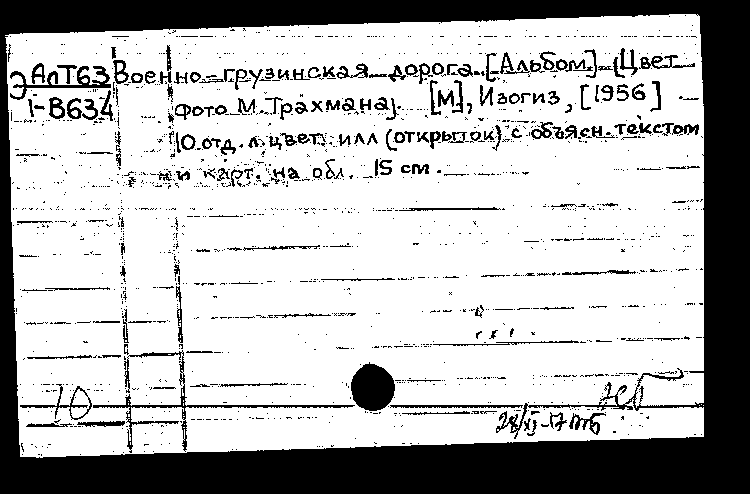 ЭАлТ63 Военно-грузинская дорога. [Альбом] [Цвет
1-В634 фото М. Трахмана]. [М], Изогиз, [1956]
10 отд. л. цвет. илл (открыток) с объясн. текстом
и карт. на обл. 15 см.
10